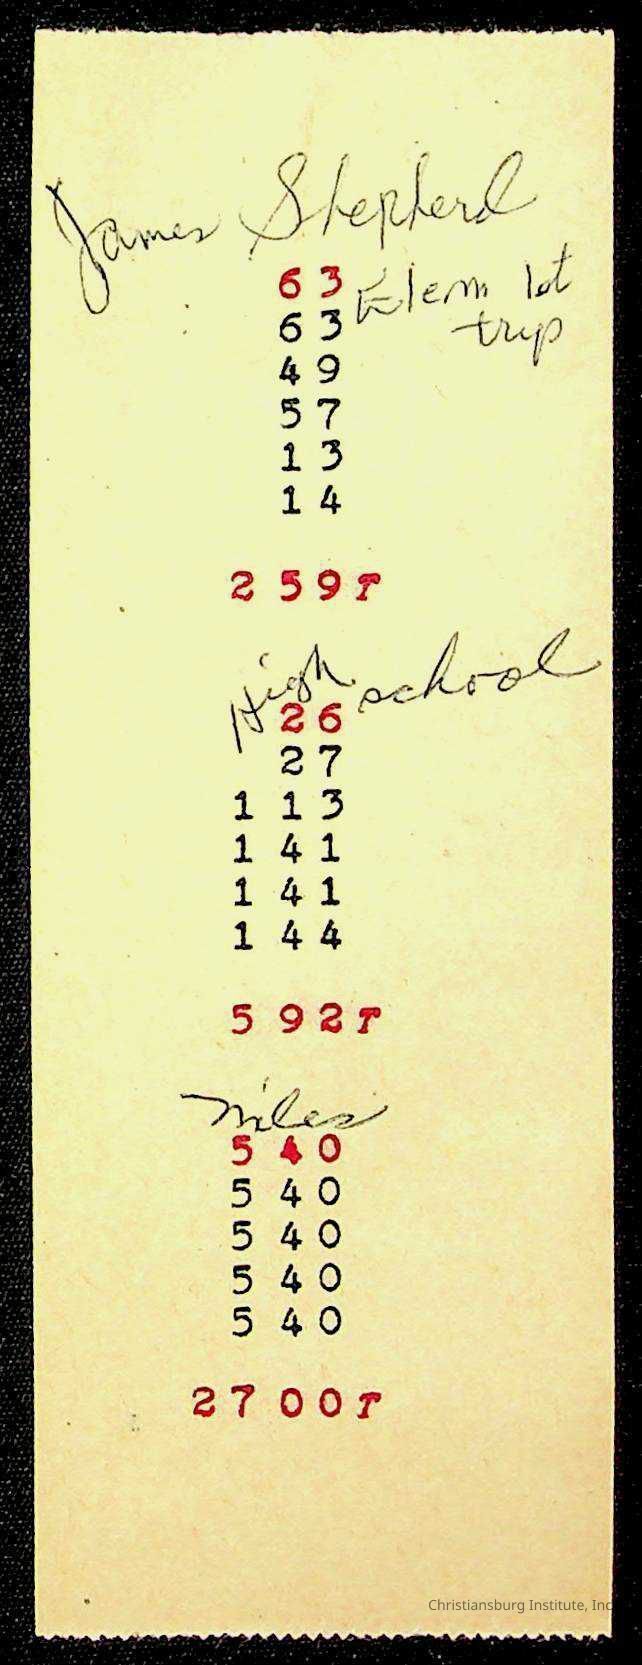 James Shepherd
63 Elem 1st
63 trip
49
57
13
14
259T
High school
26
27
113
141
141
144
592T
Miles
540
540
540
540
540
2700T
Christiansburg Institute, Inc